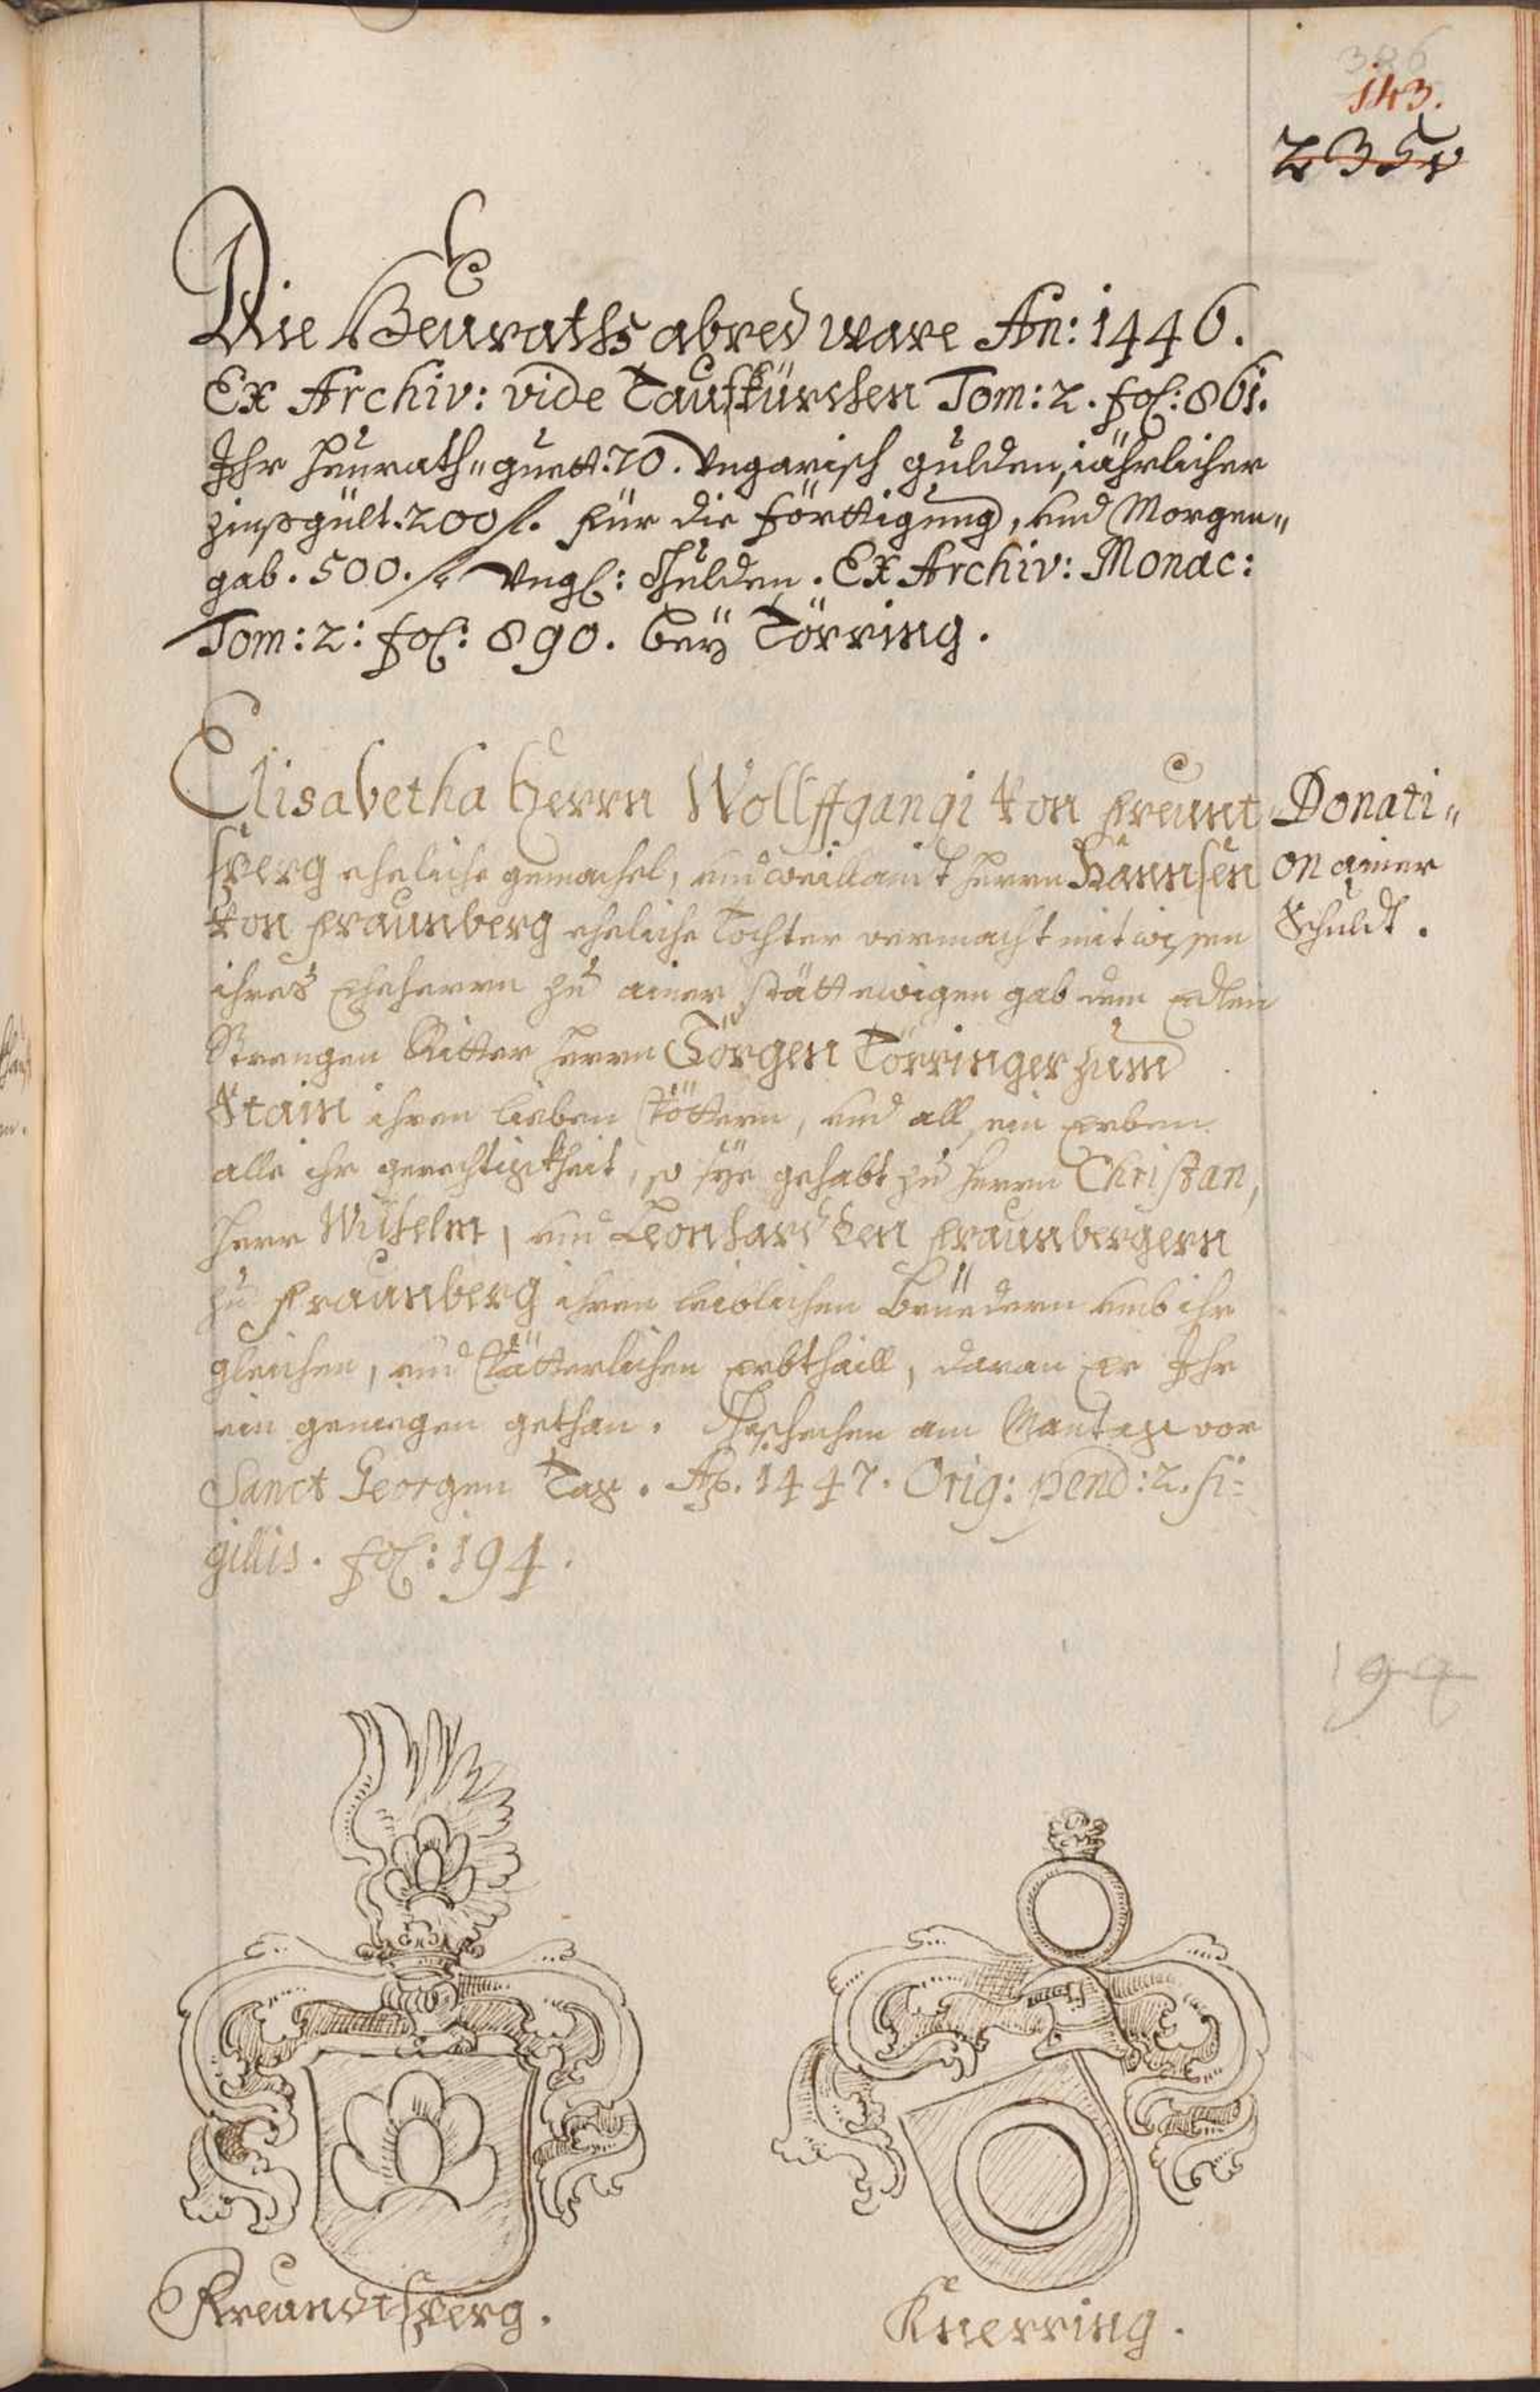 386
143.
235v
Die Heuraths abred ware An: 1446.
Ex Archiv: vide Taufkürchen Tom: 2. fol: 861.
Ihr heurath=guett. 70. Vngarisch gulden, jährlicher
zinßgült. 200 fl. für die förttigung, vnd Morgen=
gab. 500. fl. Vng: Gulden. Ex Archiv: Monac:
Tom: 2: fol: 890. beÿ Törring.
Elisabetha Herrn Wollffgangi von Freunt
sperg eheliche gemachel, vnd weillandt herrn Hannsen
von Fraunberg eheliche Tochter vermacht mit wissen
ihres Eheherrn zu ainer stätt ewigen gab dem Edlen
Strengen Ritter herrn Görgen Törringer zum
Stain ihren lieben Vöttern, vnd all sein Erben
alle ihr gerechtigkheit, so sÿe gehabt zu herrn Christan,
herr Wilhelm, vnd Leonhardt den Fraunbergern
zu Fraunberg ihren leiblichen Brüedern vmb ihr
gleichen, vnd Vätterlichen Erbthaill, davan Er Ihr
ein genuegen gethan. Geschehen am Mantag vor
Sanct Georgen Tag. Ao. 1447. Orig: pend: 2. si=
gillis. fol: 194.
Donati=
on ainer
Schuldt.
194
Freundtsperg.
Knerring.